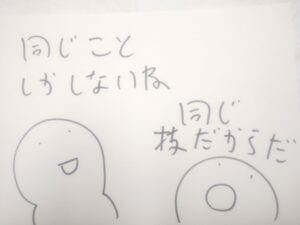 同じこと
しかしないね
同じ
技だからだ